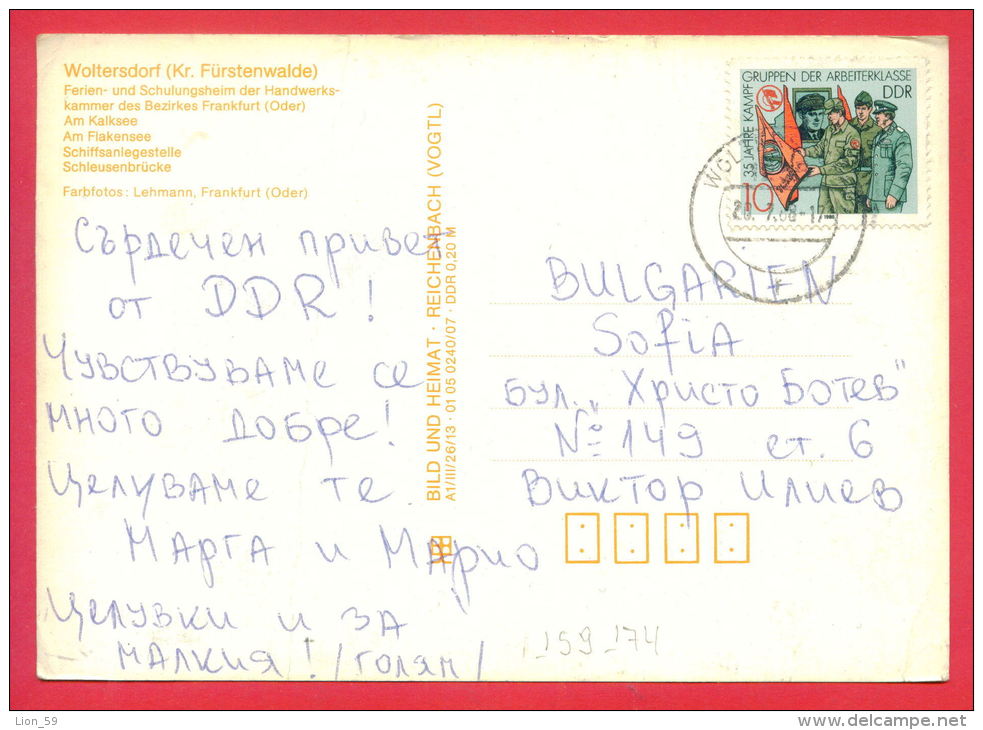 Woltersdorf (Kr. Fürstenwalde)
Ferien- und Schulungsheim der Handwerks-
kammer des Bezirkes Frankfurt (Oder)
Am Kalksee
Am Flakensee
Schiffsanlegestelle
Schleusenbrücke
Farbfotos: Lehmann, Frankfurt (Oder)
Сърдечен привет
от DDR!
Чувствуваме се
много добре!
Целуваме те.
Марта и Марио
Целувки и за
малкия! /голям/
BILD UND HEIMAT · REICHENBACH (VOGTL)
A1/III/26/13 · 01 05 0240/07 · DDR 0,20 M
35 JAHRE KAMPFGRUPPEN DER ARBEITERKLASSE
DDR
10
BULGARIEN
SofiA
бул. „Христо Ботев"
№ 149 ст. 6
Виктор Илиев
159_174
Lion_59
www.delcampe.net